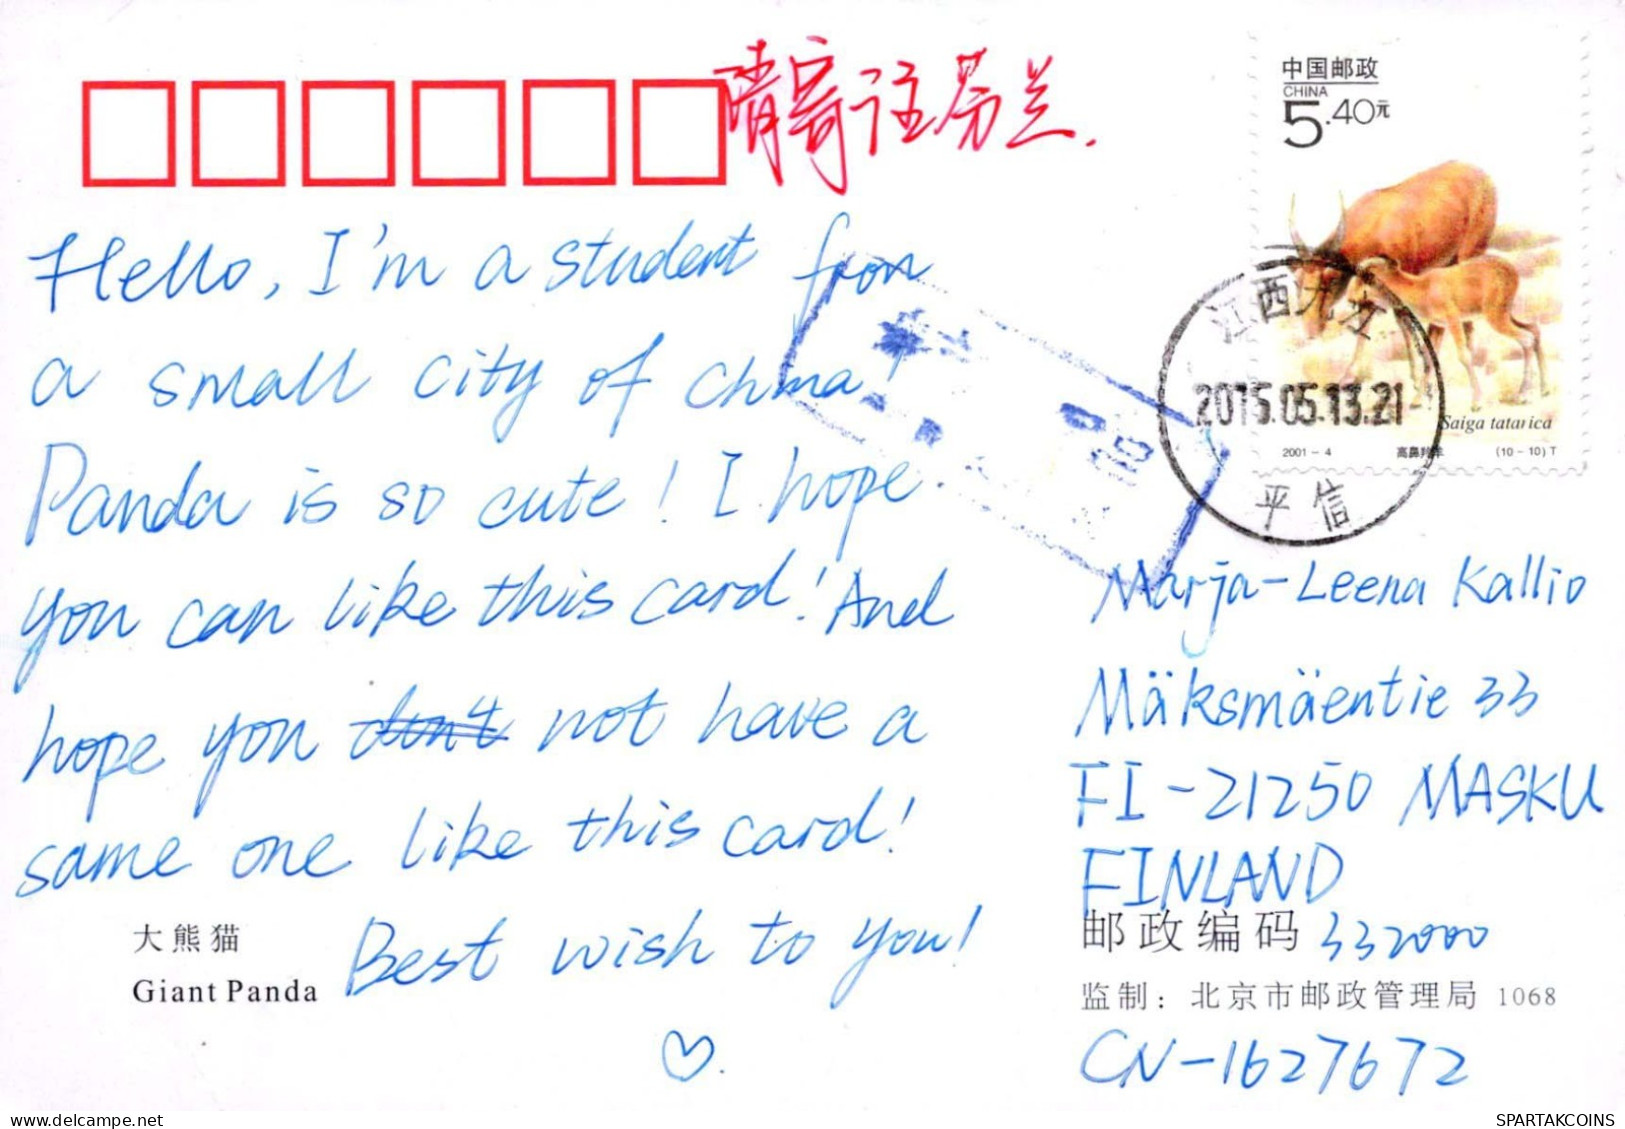 请寄往芬兰.
中国邮政
CHINA
5.40元
江西九江
2015.05.13.21
平信
Saiga tatarica
2001-4 高鼻羚羊 (10-10)T
Hello, I'm a student from
a small city of China!
Panda is so cute! I hope
you can like this card! And
hope you don't not have a
same one like this card!
Best wish to you!
♡.
大熊猫
Giant Panda
Marja-Leena Kallio
Mäksmäentie 33
FI-21250 MASKU
FINLAND
邮政编码 332000
监制：北京市邮政管理局 1068
CN-1627672
SPARTAKCOINS